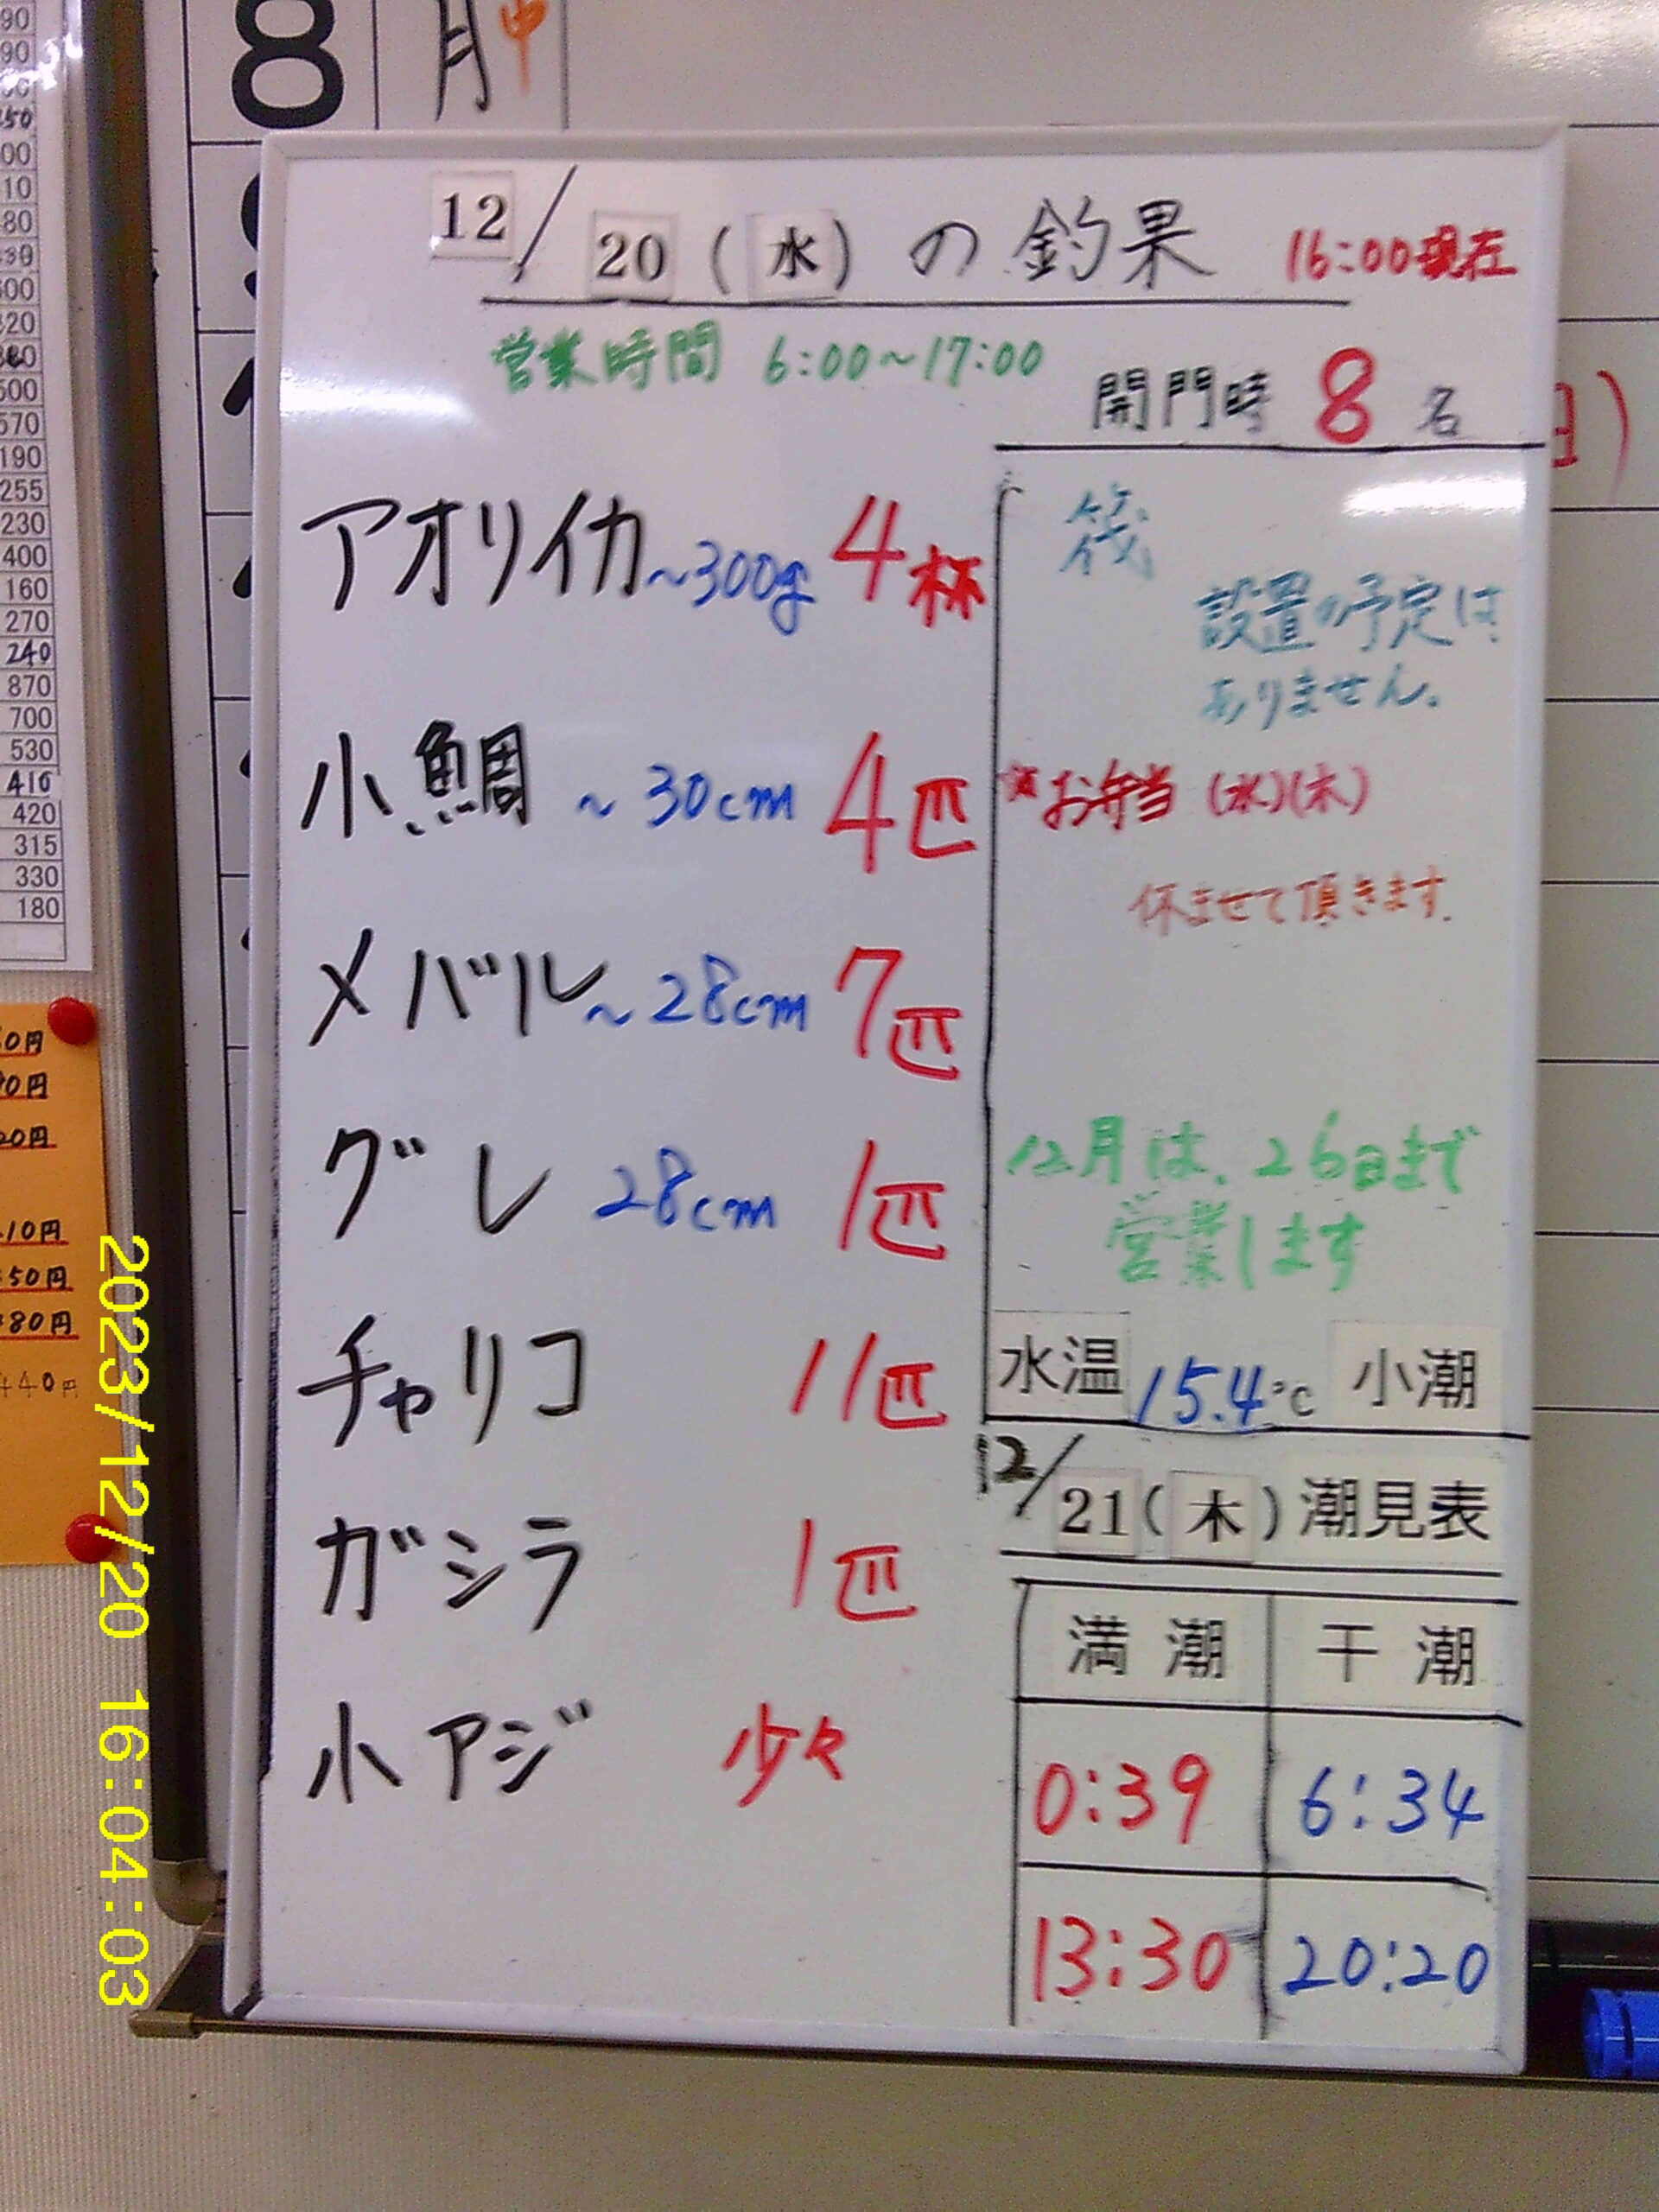 90
90
50
00
10
80
390
600
320
500
570
190
255
230
400
160
270
240
870
700
530
410
420
315
330
180
0円
90円
20円
10円
50円
80円
440円
8
月
中
日)
12/20(水)の釣果 16:00現在
営業時間 6:00~17:00
開門時 8名
アオリイカ~300g 4杯
小鯛 ~30cm 4匹
メバル~28cm 7匹
グレ 28cm 1匹
チャリコ 11匹
ガシラ 1匹
小アジ 少々
筏
設置の予定は
ありません。
*お弁当 (水)(木)
休ませて頂きます.
12月は、26日まで
営業します
水温 15.4℃ 小潮
12/21(木)潮見表
満潮 干潮
0:39 6:34
13:30 20:20
2023/12/20 16:04:03